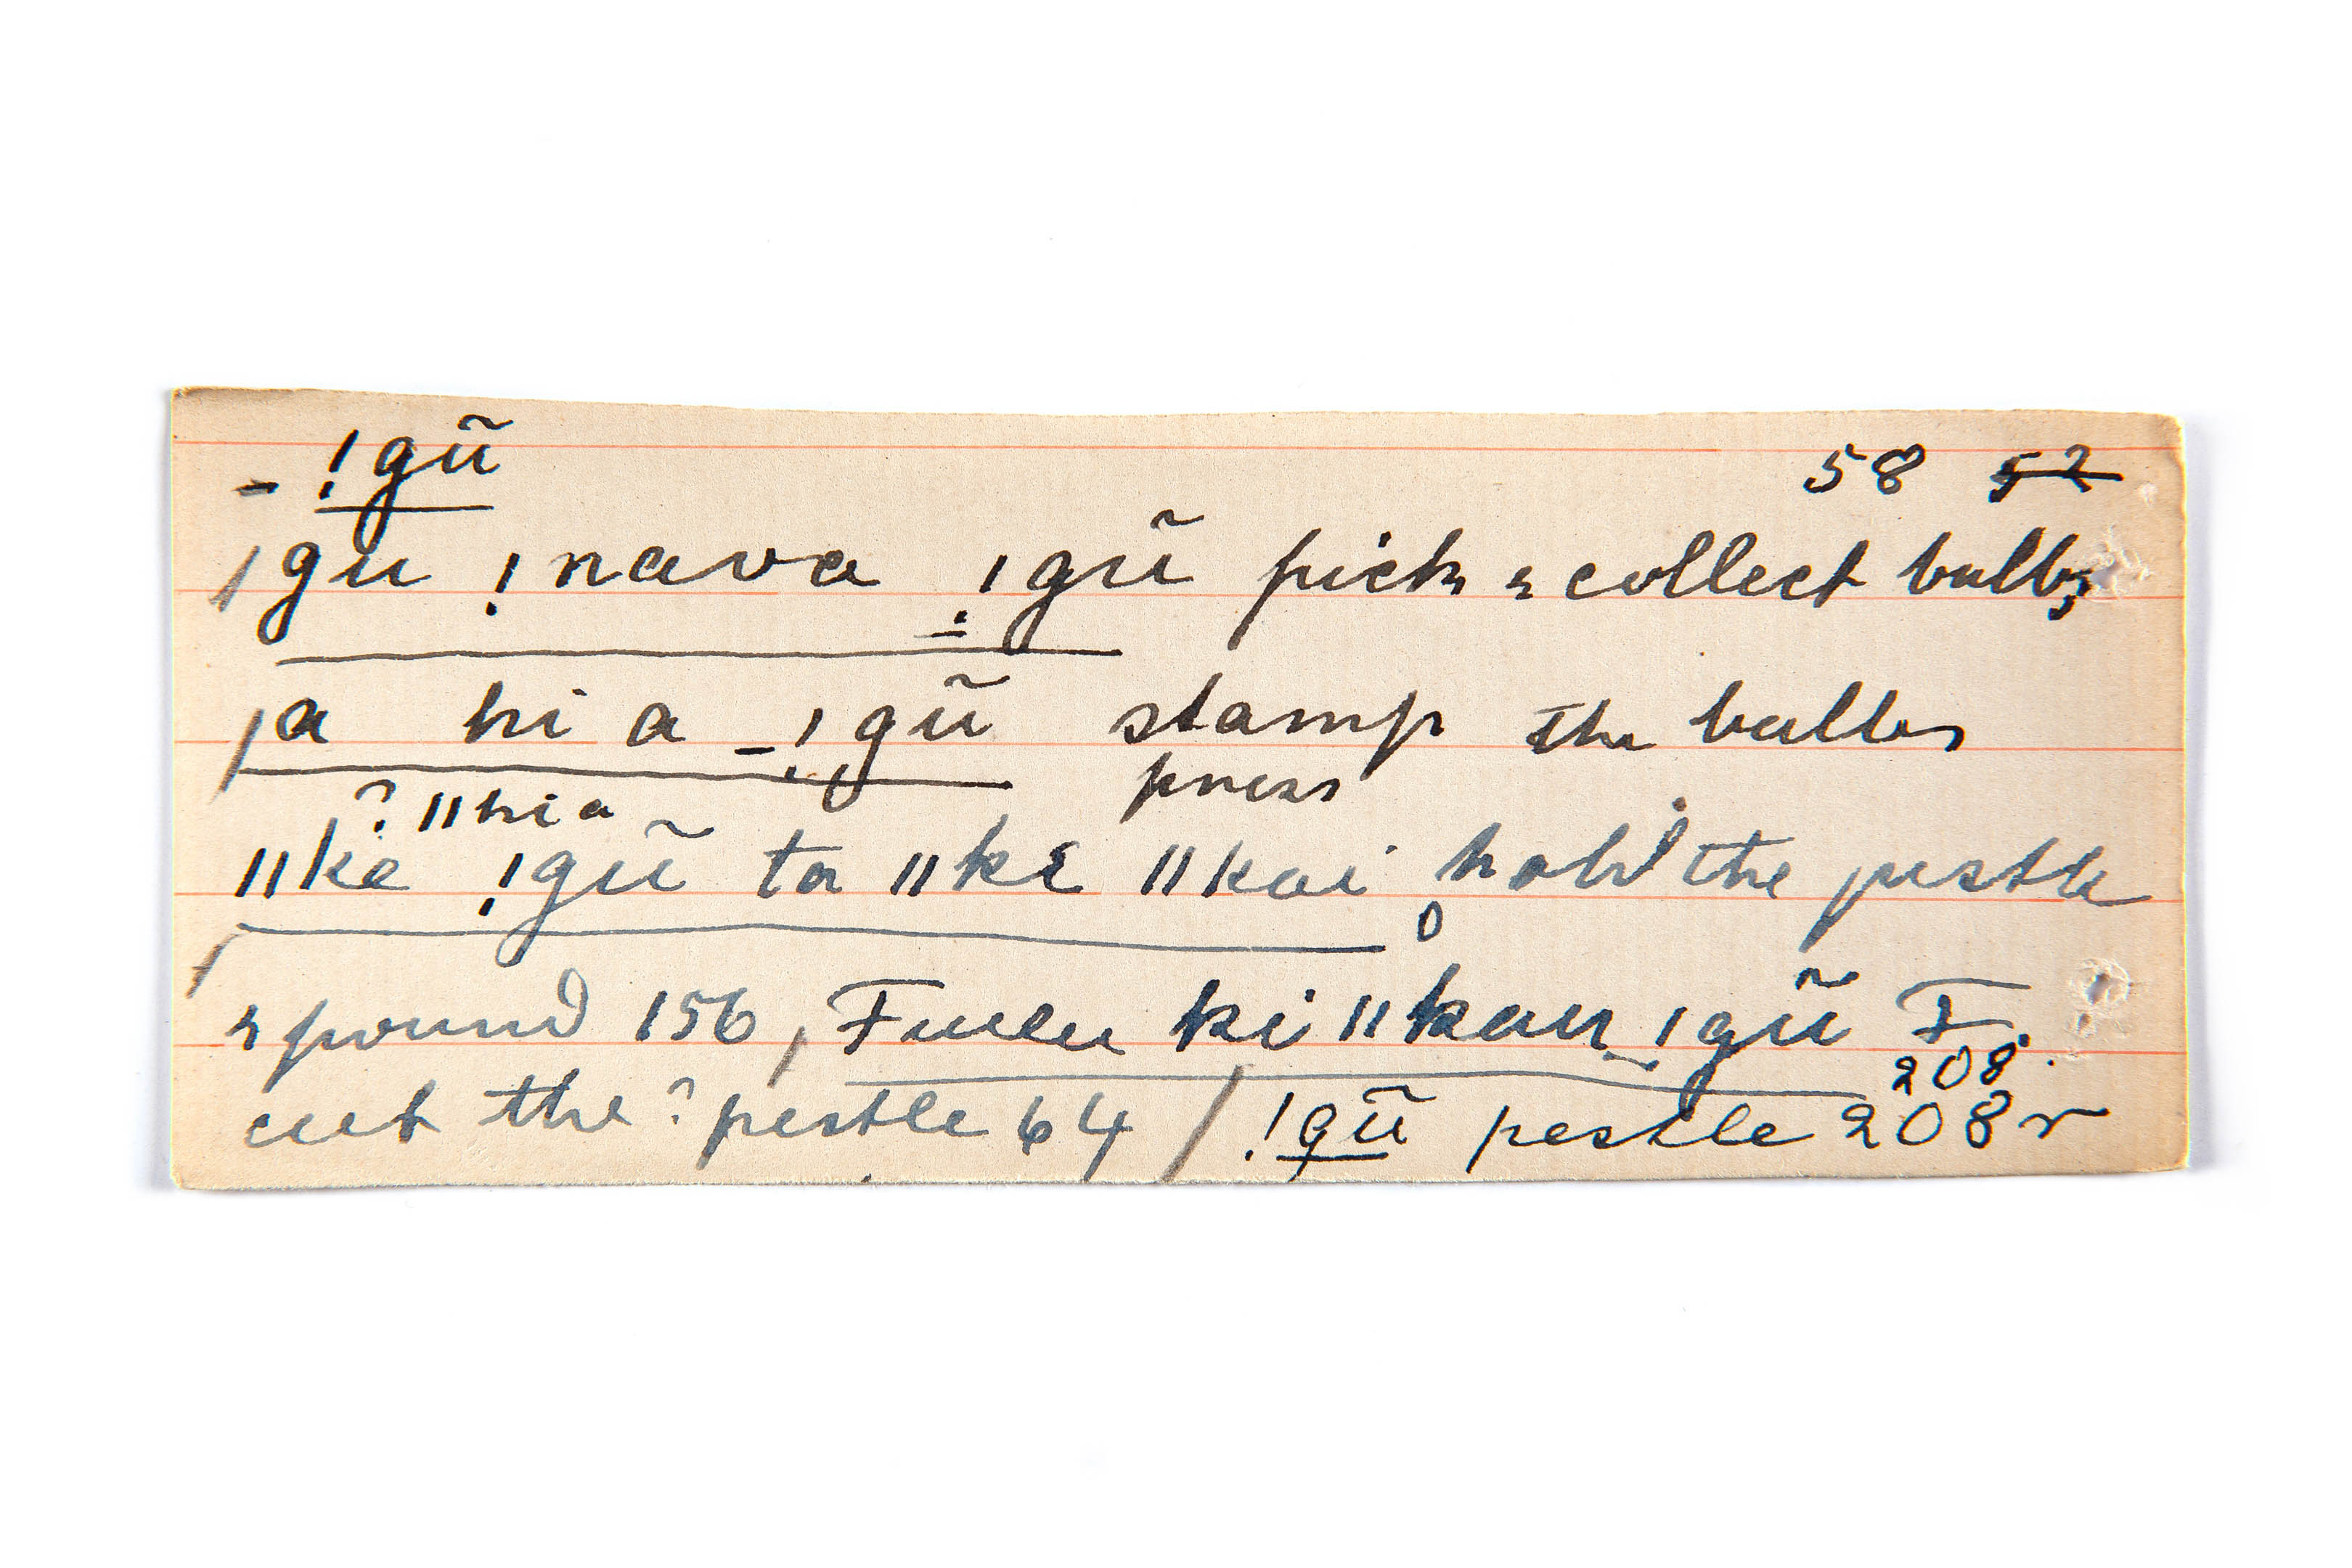 _ !gũ 58 52
/gu !nava _!gũ pick & collect bulbs
/a hi a _!gũ stamp the bulbs
? ǁhia press
ǁke !gũ ta ǁke ǁkai hold the pestle
& pound 156, / ki ǁkau _!gũ F.
208.
cut the ? pestle 64 / !gũ pestle 208 r